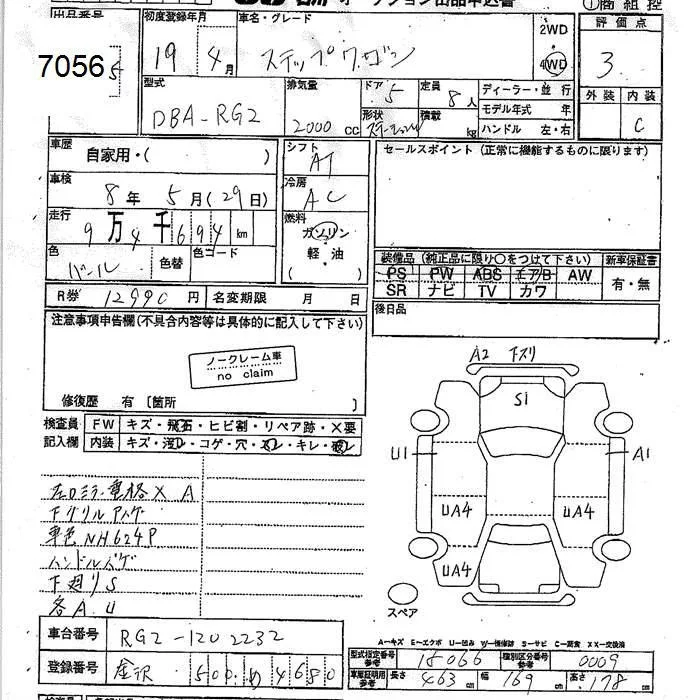 商組控
出品番号 7056
初度登録年月 19 4月
車名・グレード ステップワゴン
2WD
4WD
評価点 3
外装 内装 C
型式 DBA-RG2
排気量 2000 cc
ドア 5
形状
定員 8人
積載 kg
ディーラー・並行
モデル年式 年
ハンドル 左・右
車歴 自家用・( )
シフト AT
セールスポイント (正常に機能するものに限ります)
車検 8年 5月(29日)
冷房 AC
走行 9万4千694km
燃料 ガソリン
軽・油
( )
色 パール 色替 色コード
装備品 (純正品に限り○をつけて下さい) 新車保証書
PS PW ABS エアB AW
SR ナビ TV カワ
有・無
R券 12990円 名変期限 月 日
後日品
注意事項申告欄(不具合内容等は具体的に記入して下さい)
ノークレーム車
no claim
修復歴 有 〔箇所 〕
A2 下スリ
S1
U1
A1
UA4
UA4
UA4
スペア
検査員 FW キズ・飛石・ヒビ割・リペア跡・X要
記入欄 内装
左ロミラー電格X A
下グリルアナゲ
車色NH624P
ハンドルハゲ
下廻りS
各A.U
車台番号 RG2-1202232
登録番号 金沢 500 め 4680
A−キズ E−エクボ U−凹み S−サビ XX−交換済
型式指定番号 参考 15066
種別区分番号 参考 0009
車庫証明用 参考 長さ 463cm 幅 169cm 高さ 178cm